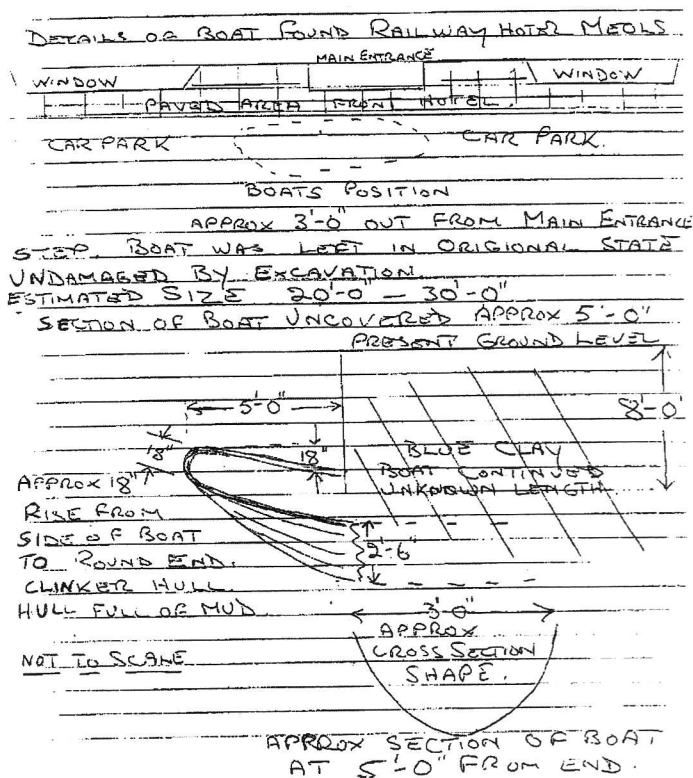 DETAILS OF BOAT FOUND RAILWAY HOTEL MEOLS
MAIN ENTRANCE
WINDOW
WINDOW
PAVED AREA FRONT HOTEL.
CAR PARK
CAR PARK.
BOATS POSITION
APPROX 3'-0" OUT FROM MAIN ENTRANCE
STEP. BOAT WAS LEFT IN ORIGIONAL STATE
UNDAMAGED BY EXCAVATION.
ESTIMATED SIZE 20'-0" - 30'-0"
SECTION OF BOAT UNCOVERED APPROX 5'-0"
PRESENT GROUND LEVEL
5'-0"
8'-0"
18"
18"
BLUE CLAY
BOAT CONTINUED
UNKNOWN LENGTH.
APPROX 18"
RISE FROM
SIDE OF BOAT
TO ROUND END.
CLINKER HULL.
HULL FULL OF MUD.
2'-6"
3'-0"
APPROX
CROSS SECTION
SHAPE.
NOT TO SCALE
APPROX SECTION OF BOAT
AT 5'-0" FROM END.